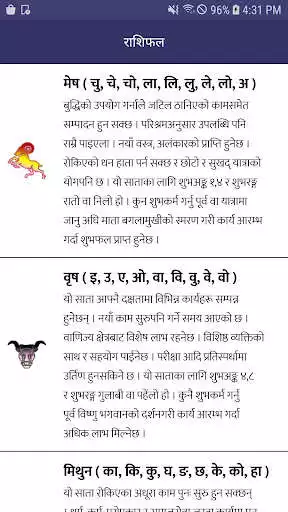 96% 4:31 PM
राशिफल
मेष ( चु, चे, चो, ला, लि, लु, ले, लो, अ )
बुद्धिको उपयोग गर्नाले जटिल ठानिएको कामसमेत
सम्पादन हुन सक्छ । परिश्रमअनुसार उपलब्धि पनि
राम्रै पाइएला । नयाँ वस्त्र, अलंकारको प्राप्ति हुनेछ ।
रोकिएको धन हाता पर्न सक्छ र छोटो र सुखद् यात्राको
योगपनि छ । यो साताका लागि शुभअङ्क १,४ र शुभरङ्ग
रातो वा निलो हो । कुन शुभकर्म गर्नु पूर्व वा यात्रामा
जानु अघि माता बगलामुखीको स्मरण गरी कार्य आरम्भ
गर्दा शुभफल प्राप्त हुनेछ ।
वृष ( इ, उ, ए, ओ, वा, वि, वु, वे, वो )
यो साता आफ्नै दक्षतामा विभिन्न कार्यहरू सम्पन्न
हुनेछन् । नयाँ काम सुरुपनि गर्ने समय आएको छ ।
वाणिज्य क्षेत्रबाट विशेष लाभ रहनेछ । विशिष्ट व्यक्तिको
साथ र सहयोग पाईनेछ । परीक्षा आदि प्रतिस्पर्धामा
उर्तिण हुनसकिने छ । यो साताका लागि शुभअङ्क ४,८
र शुभरङ्ग गुलाबी वा पहेंलो हो । कुनै शुभकर्म गर्नु
पूर्व विष्णु भगवानको दर्शनगरी कार्य आरम्भ गर्दा
अधिक लाभ मिल्नेछ ।
मिथुन ( का, कि, कु, घ, ङ, छ, के, को, हा )
यो साता रोकिएका अधूरा काम पुनः सुरु हुन सक्छन्